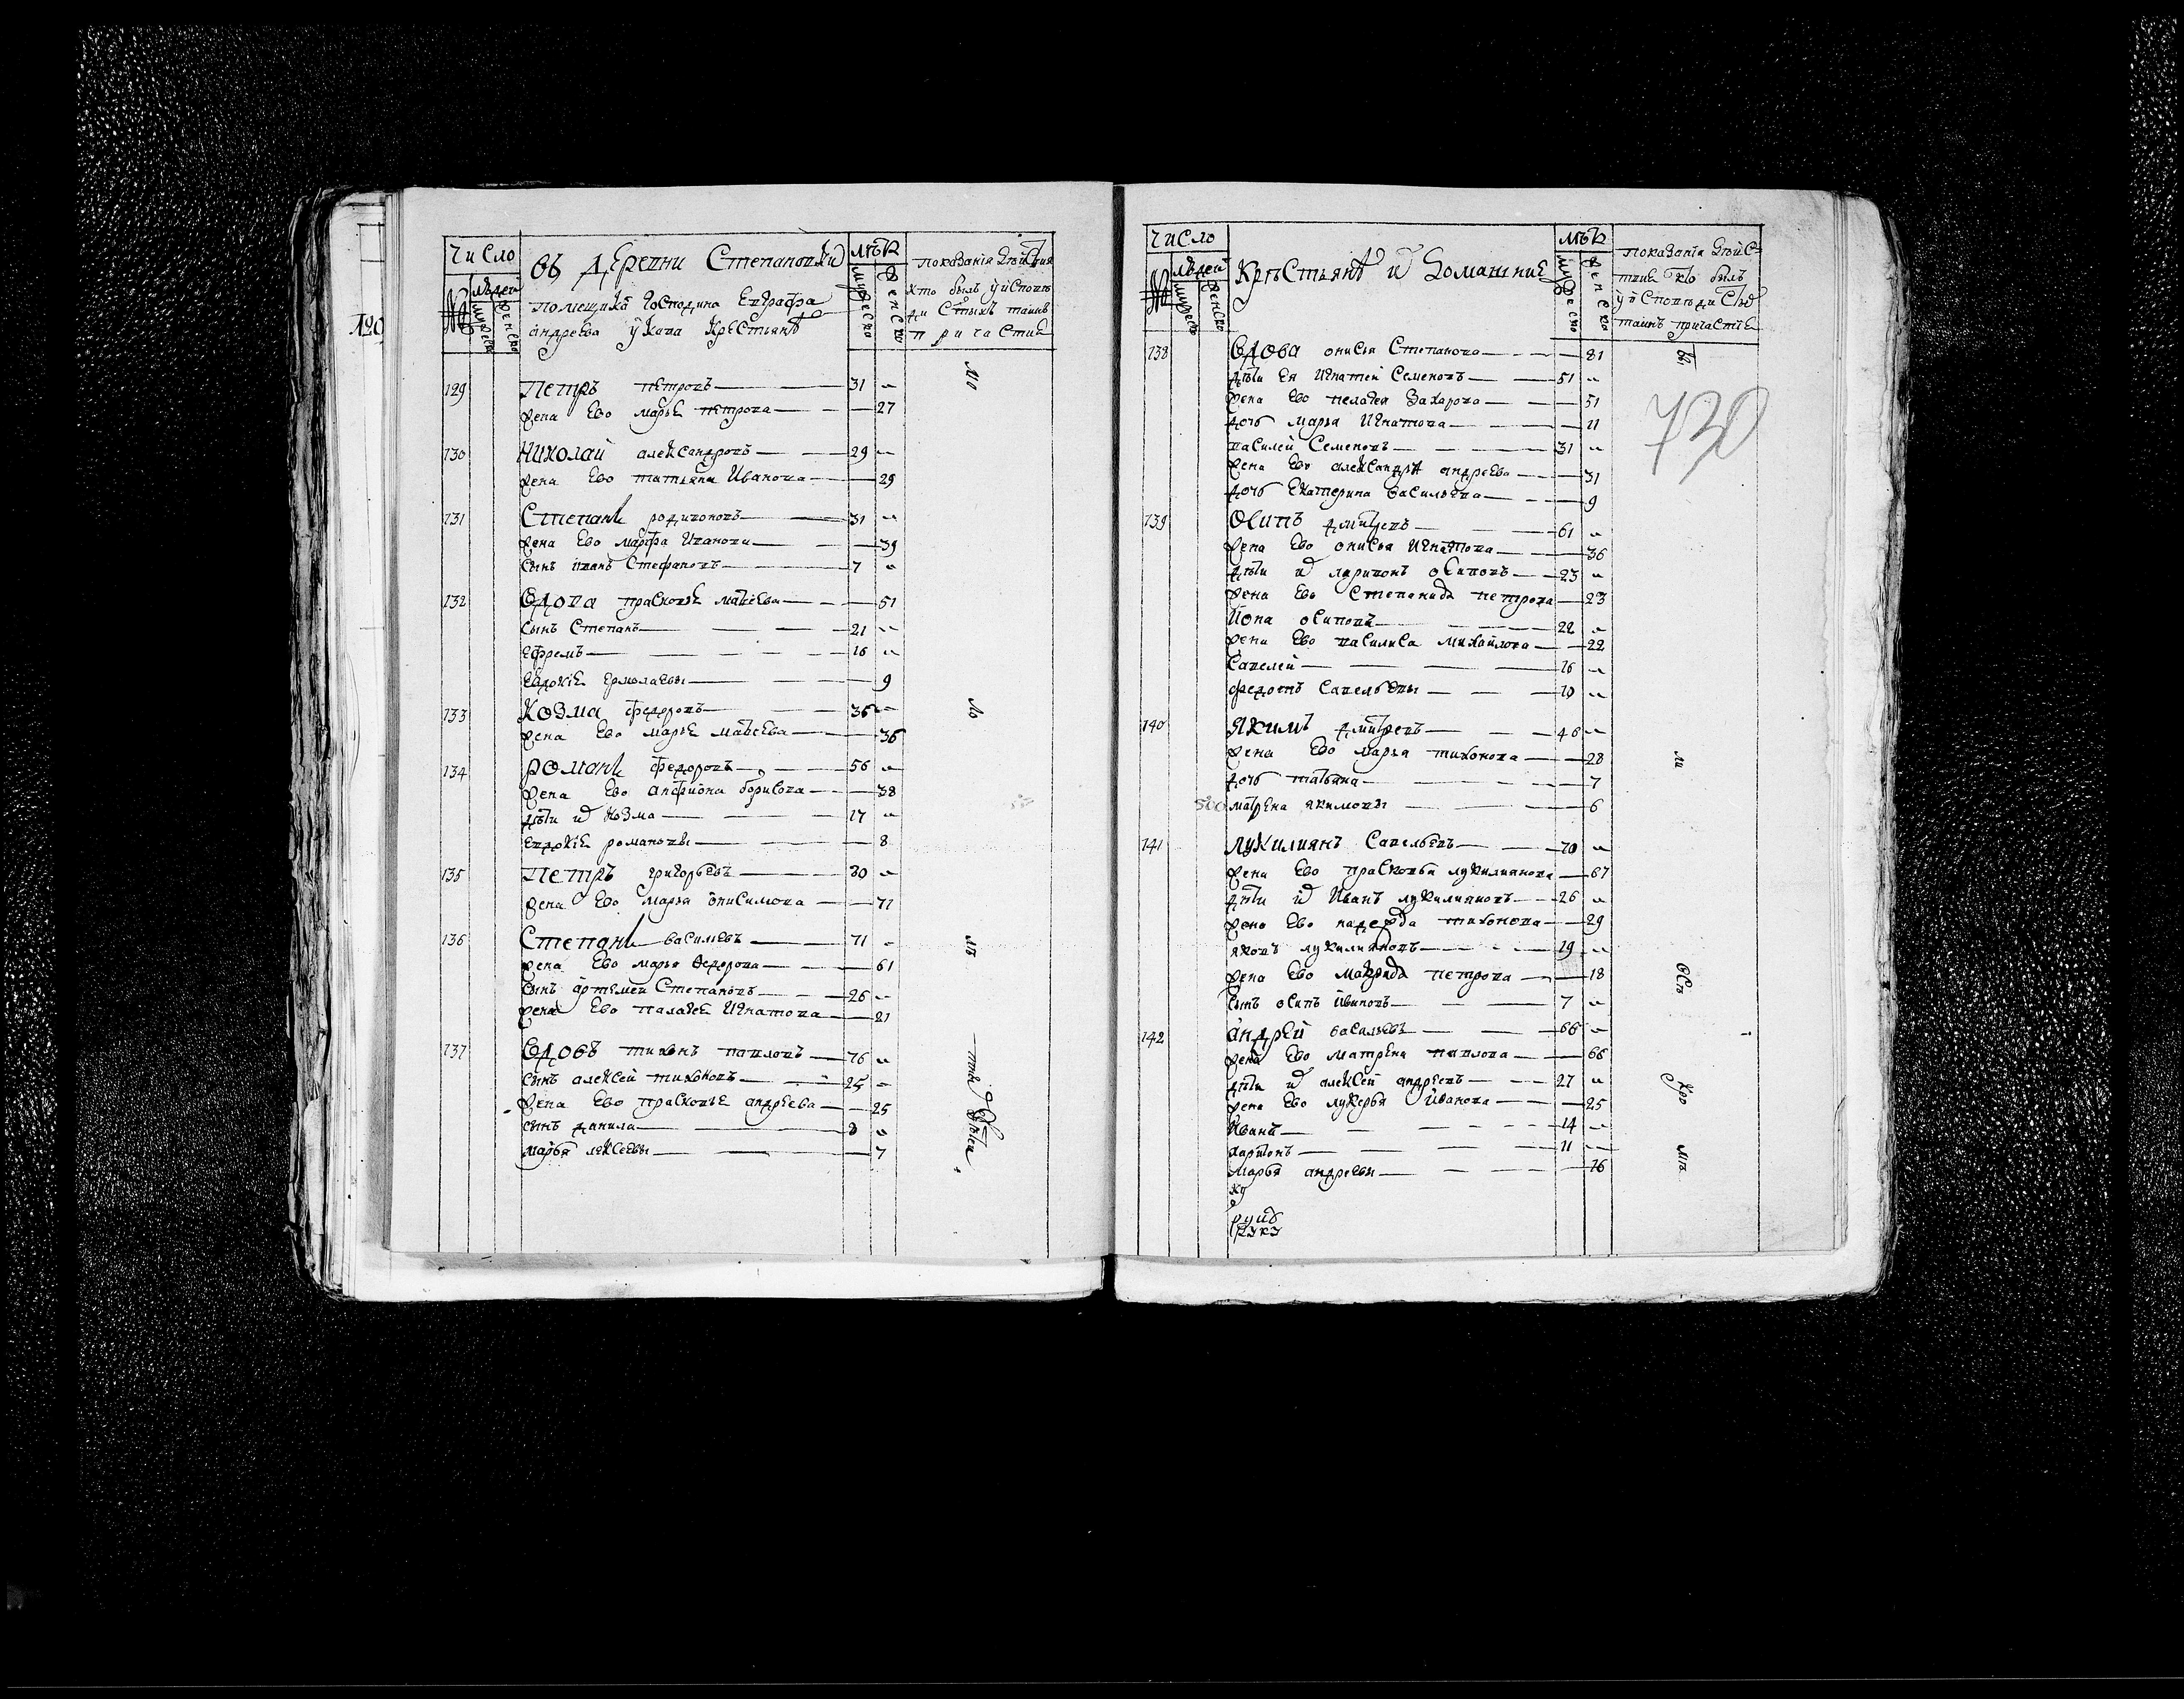 Число
людей
мужеско
женско
въ деревни Степановки
помещика Господина Евграфа
андреева крестьянъ
лѣтъ
мужеско
женско
показанія дѣйствия
кто былъ у испове
ди Стыхъ таинъ
причастие
129 Петръ петровъ 31
жена Ево марье петрова 27
130 Николай александровъ 29
жена Ево татьяна Иванова 29
131 Степанъ родивоновъ 31
жена Ево марфа Иванова 39
сынъ иванъ Стефановъ 7
132 вдова прасковье матвеева 51
сынъ Степанъ 21
ефремъ 16
евдокіе ермолаевы 9
133 Козма федоровъ 36
жена Ево марье матвеева 36
134 Романъ федоровъ 56
жена Ево борисова 38
дѣти их козма 17
евдокіе романовы 8
135 Петръ григорьевъ 80
жена Ево марья онисимова 71
136 Степанъ васильевъ 71
жена Ево марья федорова 61
сынъ артемеи Степановъ 26
жена Ево палагее Игнатова 21
137 вдовъ тихонъ павловъ 76
сынъ алексеи тихоновъ 25
жена Ево прасковье андреева 25
сынъ данила 8
марья алексеевы 7
730
Число
людей
мужеско
женско
Крѣстьянъ и домашние
лѣтъ
мужеско
женско
показания дѣйс
твие кто былъ
у исповѣди Стых
таинъ причастие
138 вдова онисья Степанова 81
дѣти Ея Игнатей Семеновъ 51
жена Ево пелагея Захарова 51
дочь марья Игнатова 11
василей Семеновъ 31
жена Ево александра андреева 31
дочь Екатерина васильева 9
139 Осипъ дмитревъ 61
жена Ево онисья Игнатова 36
дѣти их ларивонъ осиповъ 23
жена Ево Степанида петрова 23
Иона осиповъ 22
жена Ево василиса михайлова 22
Савелей 16
федотъ Савельевы 10
140 Якимъ дмитревъ 46
жена Ево марья тихонова 28
дочь татьяна 7
матрена якимовы 6
141 лукилиянъ Савельевъ 70
жена Ево прасковья лукилиянова 67
дѣти их Иванъ лукилияновъ 26
жена Ево надежда тихонова 29
яковъ лукилияновъ 19
жена Ево петрова 18
сынъ осипъ ивановъ 7
142 андрей васильевъ 66
жена Ево матрена павлова 66
дѣти их алексей андреевъ 27
жена Ево лукерья Иванова 25
Иванъ 14
харитонъ 11
марья андреевы 16